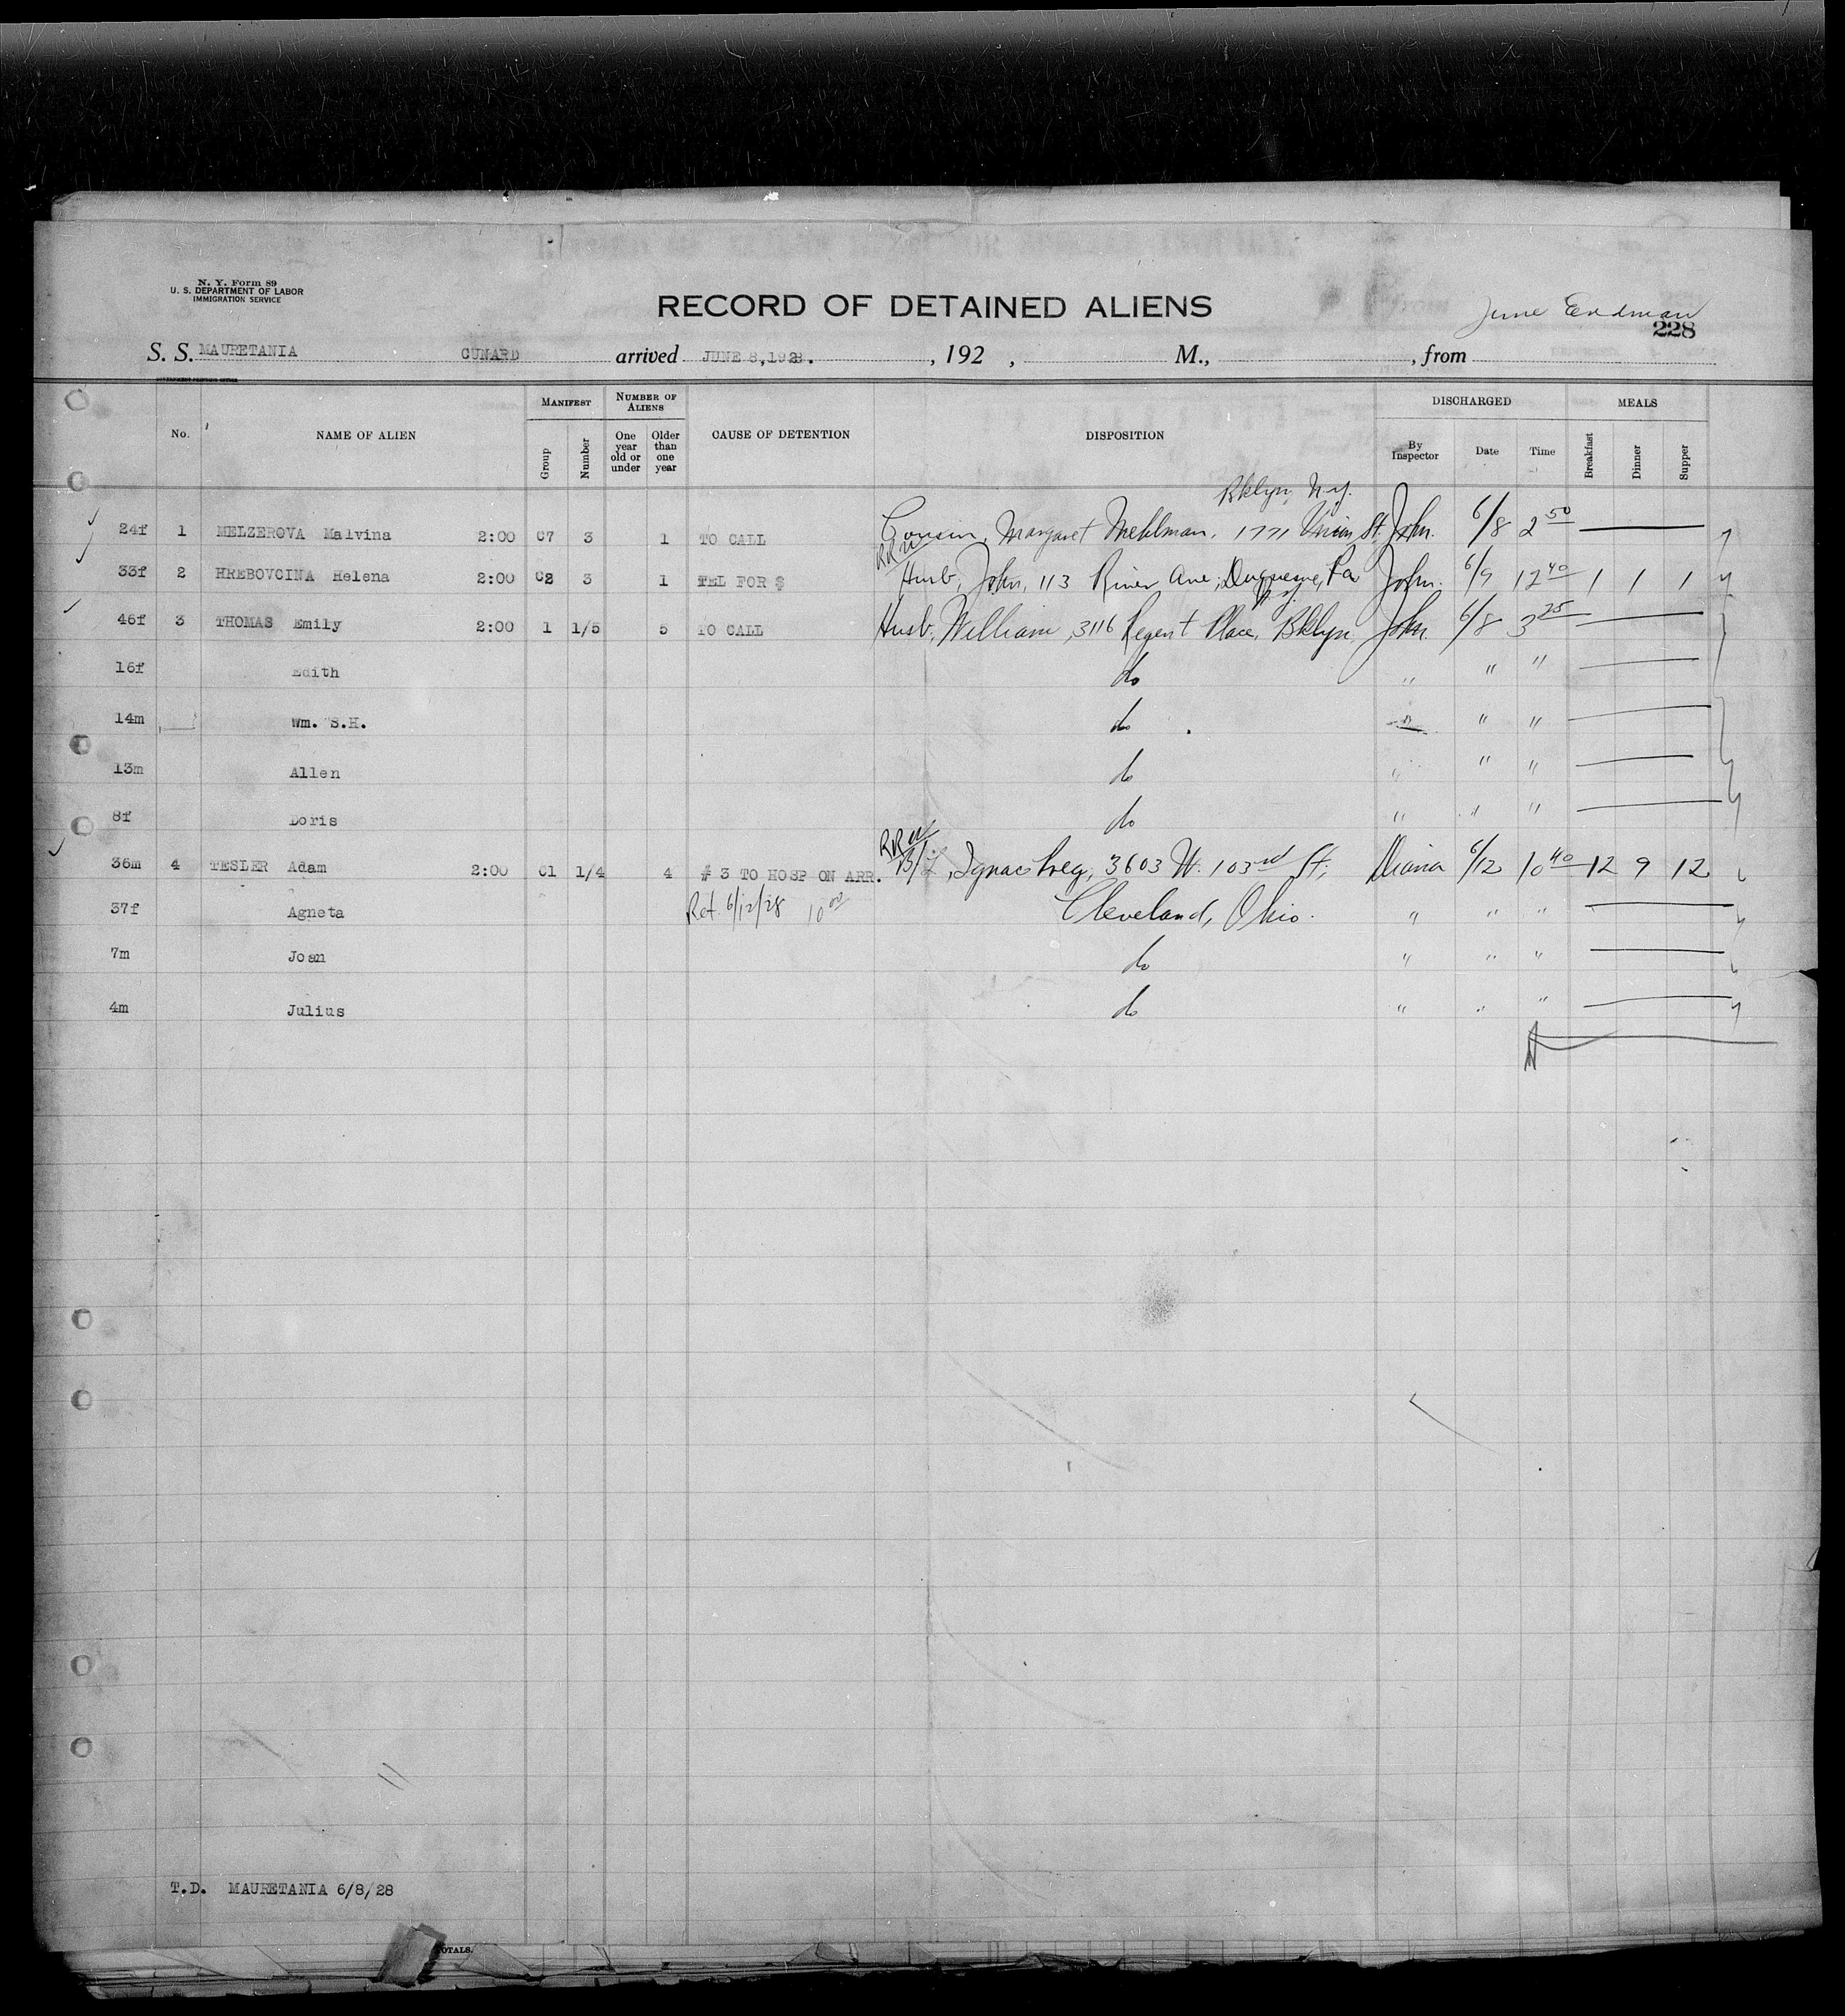 N. Y. Form 89
U. S. DEPARTMENT OF LABOR
IMMIGRATION SERVICE
RECORD OF DETAINED ALIENS
June Erdman
228
S. S. MAURETANIA CUNARD arrived JUNE 8, 1928. , 192 , M., , from
No. NAME OF ALIEN MANIFEST Group Number NUMBER OF ALIENS One year old or under Older than one year CAUSE OF DETENTION DISPOSITION DISCHARGED By Inspector Date Time MEALS Breakfast Dinner Supper
Bklyn, N.Y.
24f 1 MELZEROVA Malvina 2:00 C7 3 1 TO CALL Cousin, Margaret Mehlman, 1771 Union St. John. 6/8 2 50
33f 2 HREBOVCINA Helena 2:00 C2 3 1 TEL FOR $ Husb, John, 113 River Ave, Duquesne, Pa John. 6/9 12 40 1 1 1
N.Y.
46f 3 THOMAS Emily 2:00 1 1/5 5 TO CALL Husb, William, 3116 Regent Place, Bklyn John. 6/8 3 25
16f Edith do " " "
14m Wm. S.H. do " " "
13m Allen do " " "
8f Doris do " " "
36m 4 TESLER Adam 2:00 C1 1/4 4 # 3 TO HOSP ON ARR. B/L, Ignac 3603 W. 103rd St; Diana 6/12 10 40 12 9 12
37f Agneta Ret. 6/12/28 10 00 Cleveland, Ohio. " " "
7m Joan do " " "
4m Julius do " " "
T.D. MAURETANIA 6/8/28
TOTALS.